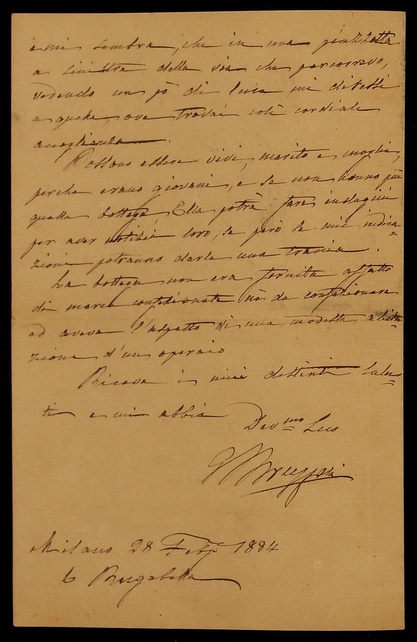 e mi sembra, che in una piazzetta
a sinistra della via che percorrevo,
vedendo un pò di luce mi diressi
a quella ove trovai così cordiale
accoglienza.
Possono essere vivi, marito e moglie,
perchè erano giovani, e se non hanno più
quella bottega Ella potrà fare indagini
per aver notizia loro, se però le mie indica-
zioni potranno darle una traccia.
La bottega non era fornita affatto
di merci confezionate nè da confezionare
ed aveva l'aspetto di una modesta abita-
zione d'un operaio
Riceva i miei distinti salu-
ti e mi abbia
Dev.mo Suo
Milano 28 Febb 1884
6